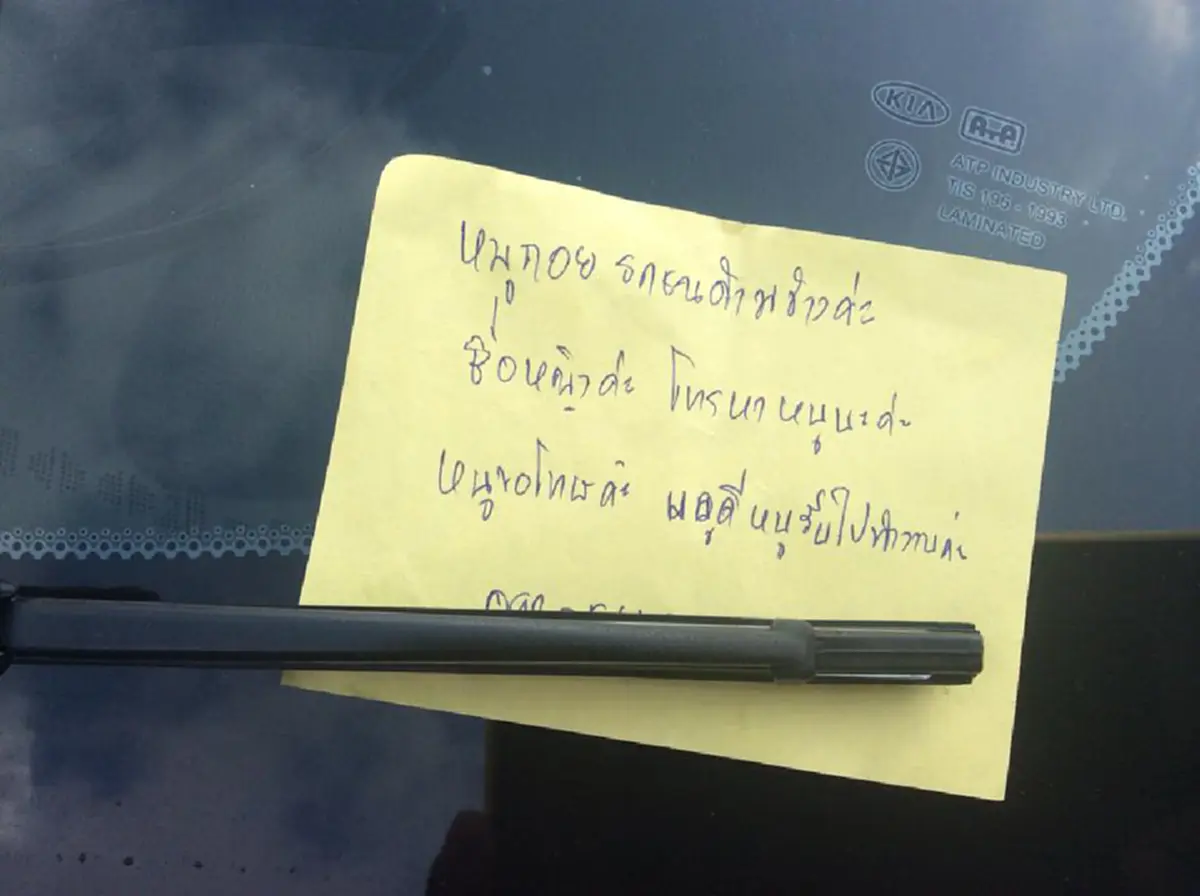 KIA
ATA
ATP INDUSTRY LTD.
TIS 196 - 1993
LAMINATED
หนูถอยรถชนด้านข้างค่ะ
ชื่อหญิงค่ะ โทรหาหนูนะค่ะ
หนูขอโทษค่ะ พอดีหนูรีบไปทำงานค่ะ